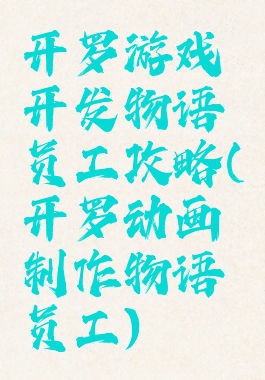 开罗游戏
开发物语
员工攻略(
开罗动画
制作物语
员工)